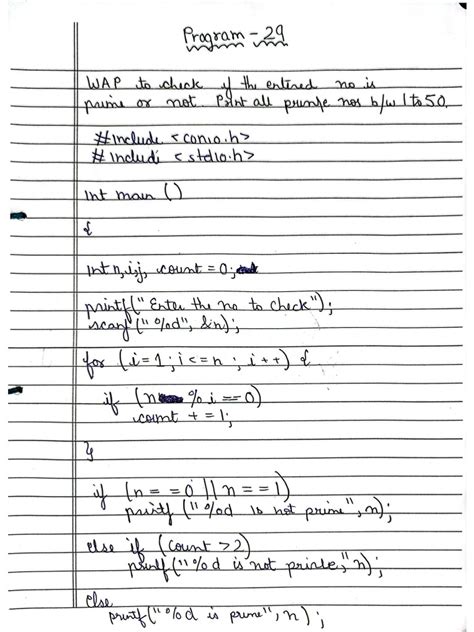 Program - 29
WAP to check if the entered no is
prime or not. Print all prime nos b/w 1 to 50.
#include <conio.h>
#include <stdio.h>
int main ()
{
int n,i,j, count = 0;
printf("Enter the no to check");
scanf ("%d", &n);
for (i=1; i<=n ; i++) {
if (n % i == 0)
count += 1;
}
if (n == 0 || n == 1)
printf ("%d is not prime", n);
else if (count >2)
printf("%d is not prime," n);
else
printf("%d is prime", n);